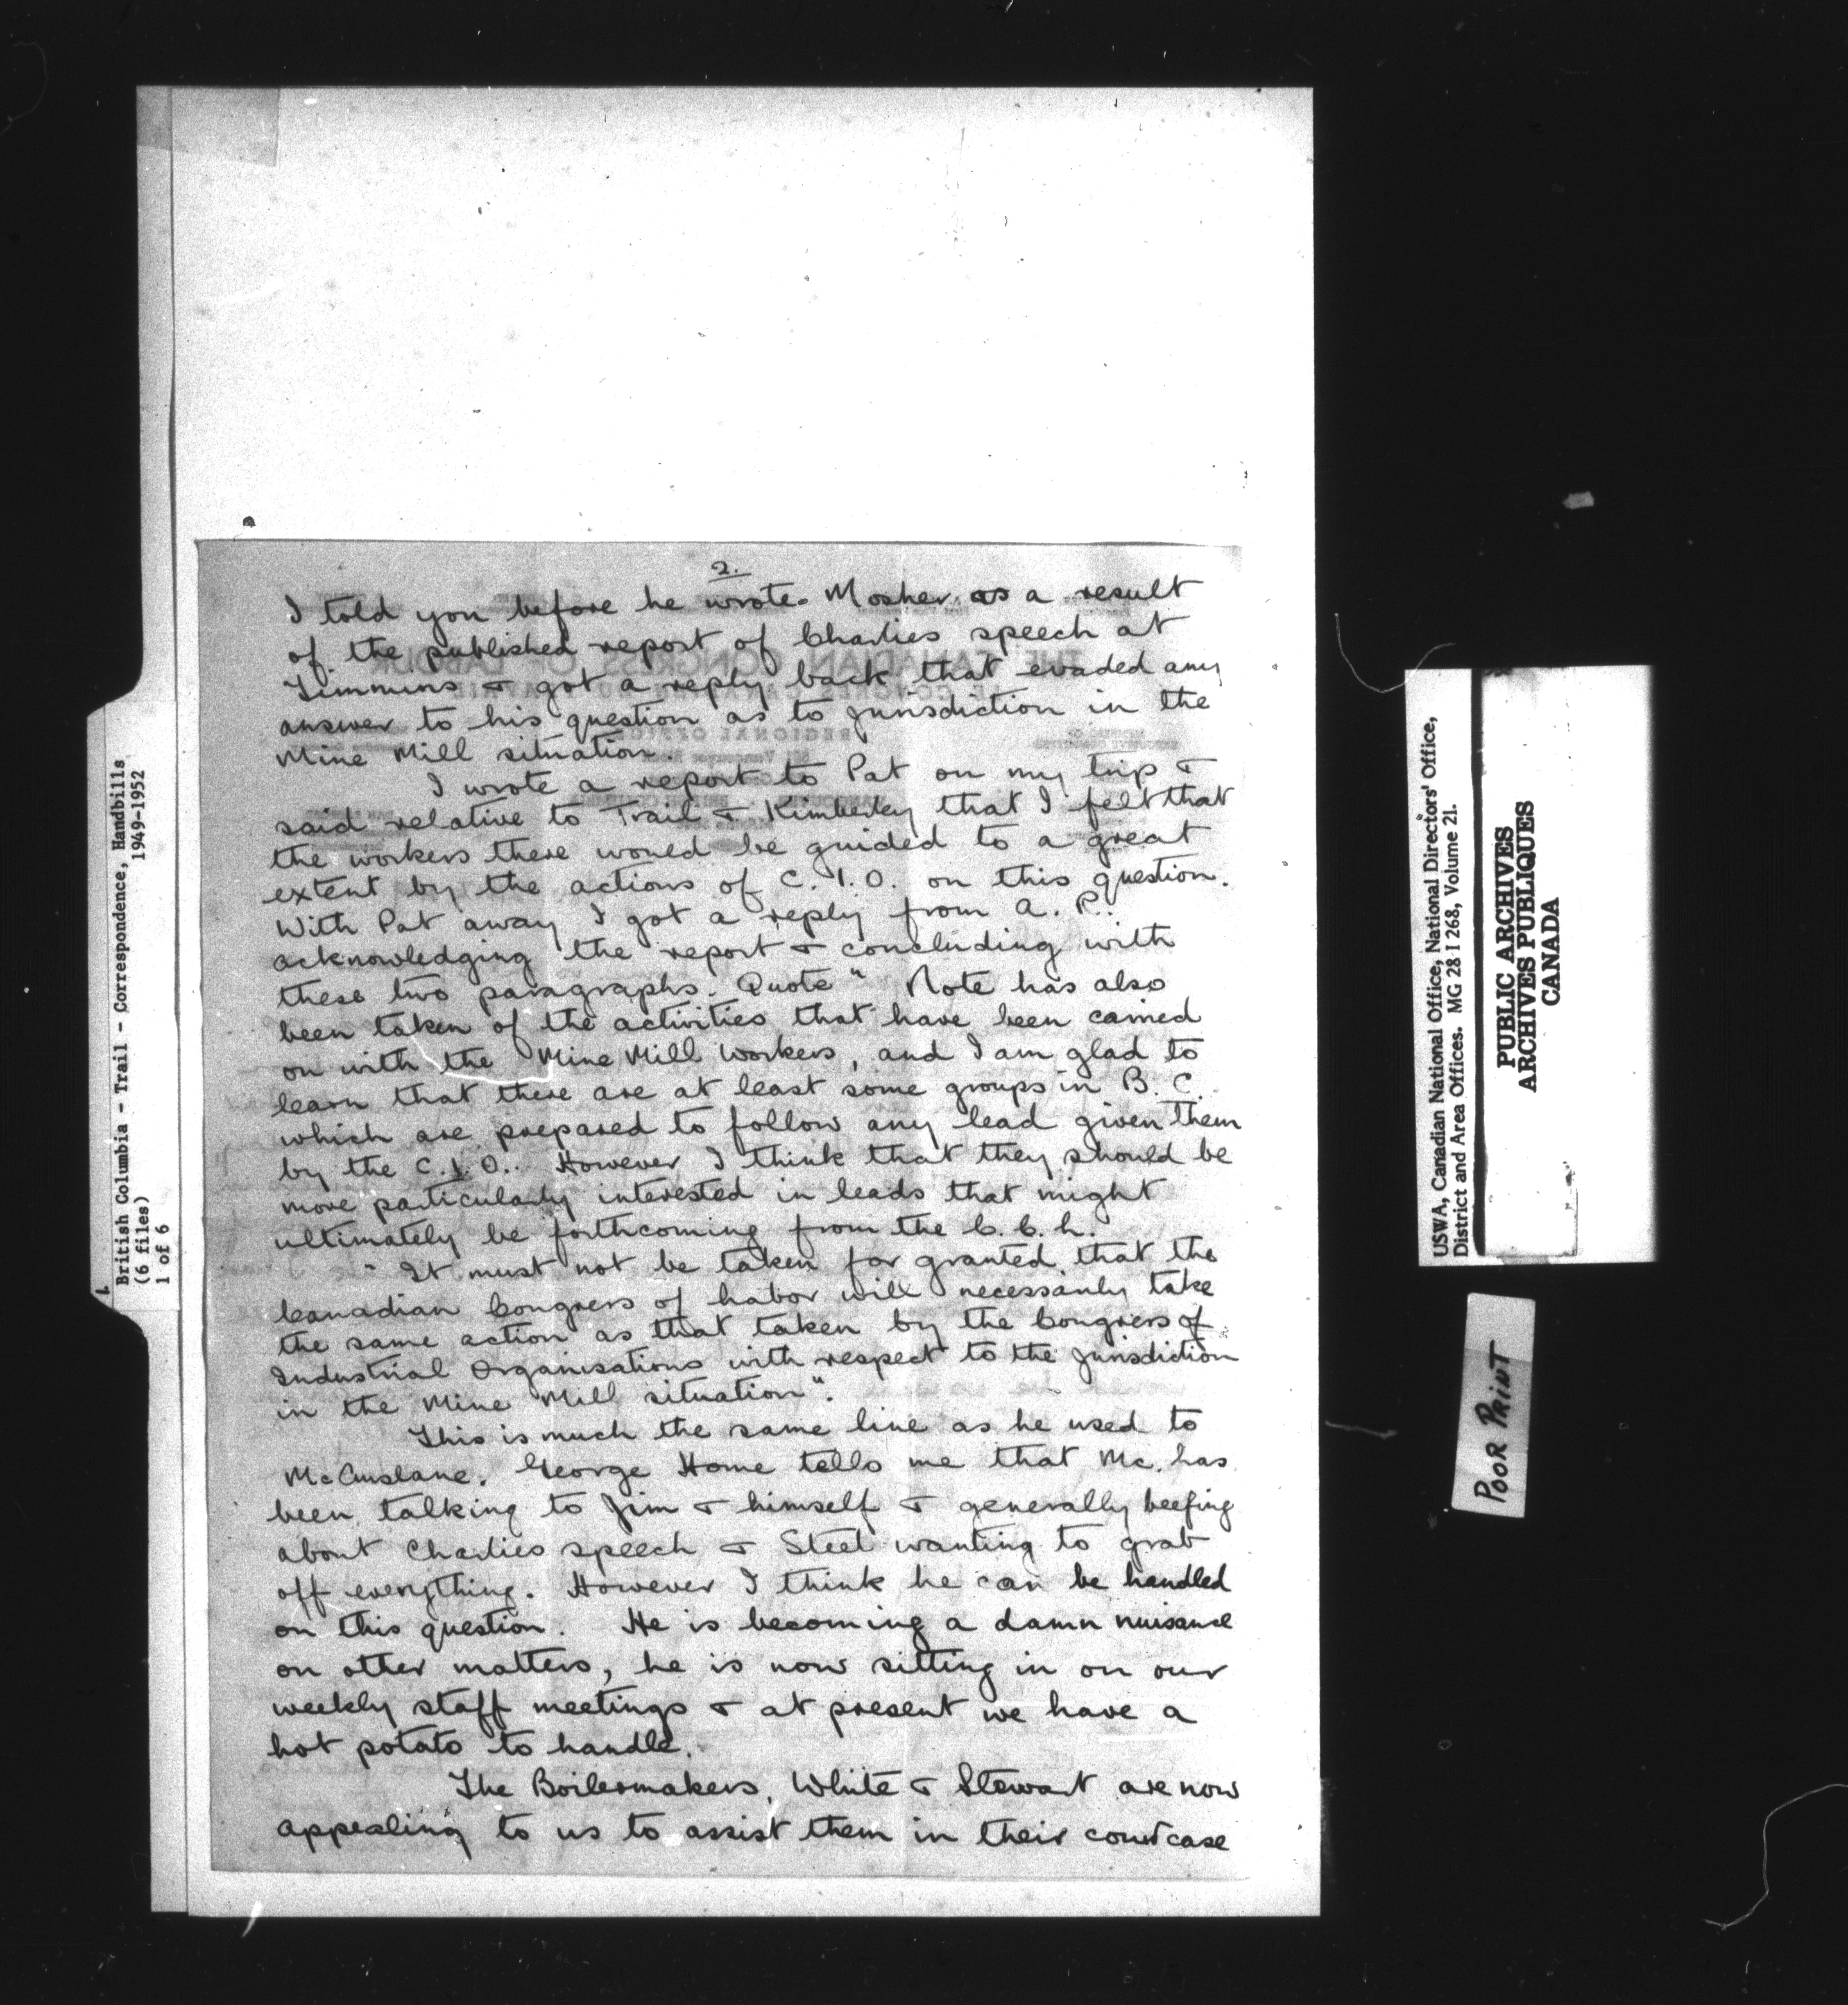 2.
I told you before he wrote Mosher as a result
of the published report of Charlies speech at
Timmins & got a reply back that evaded any
answer to his question as to jurisdiction in the
Mine Mill situation.
I wrote a report to Pat on my trip &
said relative to Trail & Kimberley that I felt that
the workers there would be guided to a great
extent by the actions of C.I.O. on this question.
With Pat away I got a reply from A. R.
acknowledging the report & concluding with
these two paragraphs. Quote " Note has also
been taken of the activities that have been carried
on with the Mine Mill workers, and I am glad to
learn that there are at least some groups in B.C.
which are prepared to follow any lead given them
by the C.I.O.. However I think that they should be
more particularly interested in leads that might
ultimately be forthcoming from the C.C.L.
" It must not be taken for granted that the
Canadian Congress of Labor will necessarily take
the same action as that taken by the Congress of
Industrial Organisations with respect to the jurisdiction
in the Mine Mill situation".
This is much the same line as he used to
McAuslane. George Home tells me that Mc. has
been talking to Jim & himself & generally beefing
about Charlies speech & Steel wanting to grab
off everything. However I think he can be handled
on this question. He is becoming a damn nuisance
on other matters, he is now sitting in on our
weekly staff meetings & at present we have a
hot potato to handle.
The Boilermakers, White & Stewart are now
appealing to us to assist them in their court case
THE CANADIAN CONGRESS OF LABOUR
REGIONAL OFFICE
1.
British Columbia - Trail - Correspondence, Handbills
(6 files) 1949-1952
1 of 6
USWA, Canadian National Office, National Directors' Office,
District and Area Offices. MG 28 I 268, Volume 21.
PUBLIC ARCHIVES
ARCHIVES PUBLIQUES
CANADA
POOR PRINT